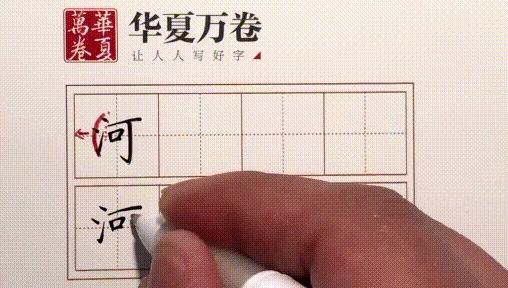 萬華
卷夏
华夏万卷
让人人写好字
河
河